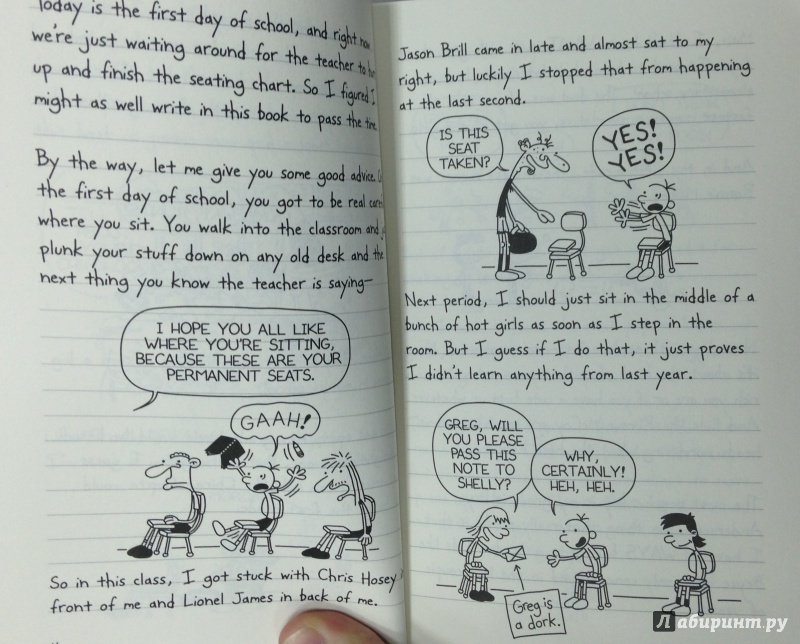 Today is the first day of school, and right now
we're just waiting around for the teacher to
up and finish the seating chart. So I figured I
might as well write in this book to pass the time.
By the way, let me give you some good advice.
the first day of school, you got to be real
where you sit. You walk into the classroom and
plunk your stuff down on any old desk and the
next thing you know the teacher is saying—
I HOPE YOU ALL LIKE
WHERE YOU'RE SITTING,
BECAUSE THESE ARE YOUR
PERMANENT SEATS.
GAAH!
So in this class, I got stuck with Chris Hosey
front of me and Lionel James in back of me.
Jason Brill came in late and almost sat to my
right, but luckily I stopped that from happening
at the last second.
IS THIS
SEAT
TAKEN?
YES!
YES!
Next period, I should just sit in the middle of a
bunch of hot girls as soon as I step in the
room. But I guess if I do that, it just proves
I didn't learn anything from last year.
GREG, WILL
YOU PLEASE
PASS THIS
NOTE TO
SHELLY?
WHY,
CERTAINLY!
HEH, HEH.
Greg is
a dork.
Лабиринт.ру